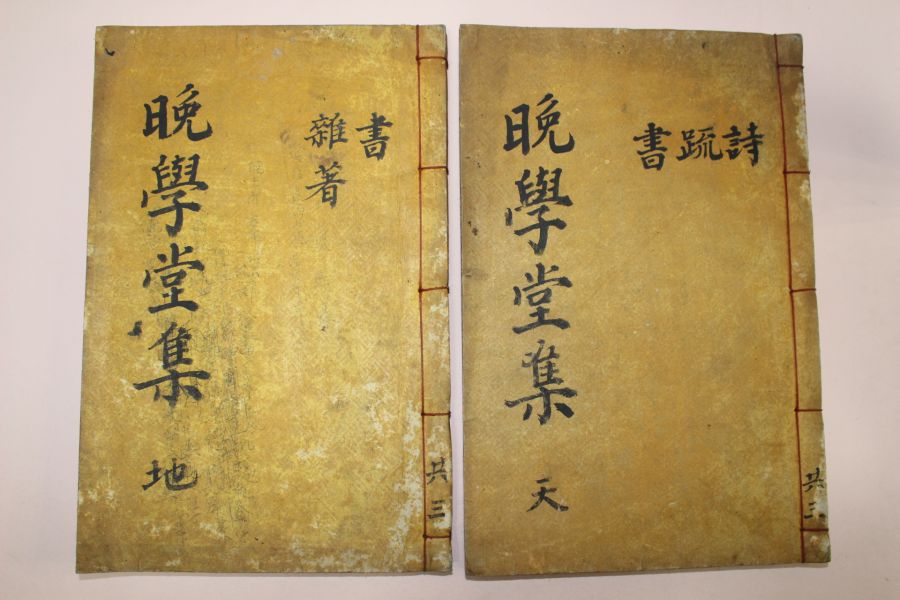 詩
疏
書
晩學堂集 天
共三
書
雜著
晩學堂集 地
共三